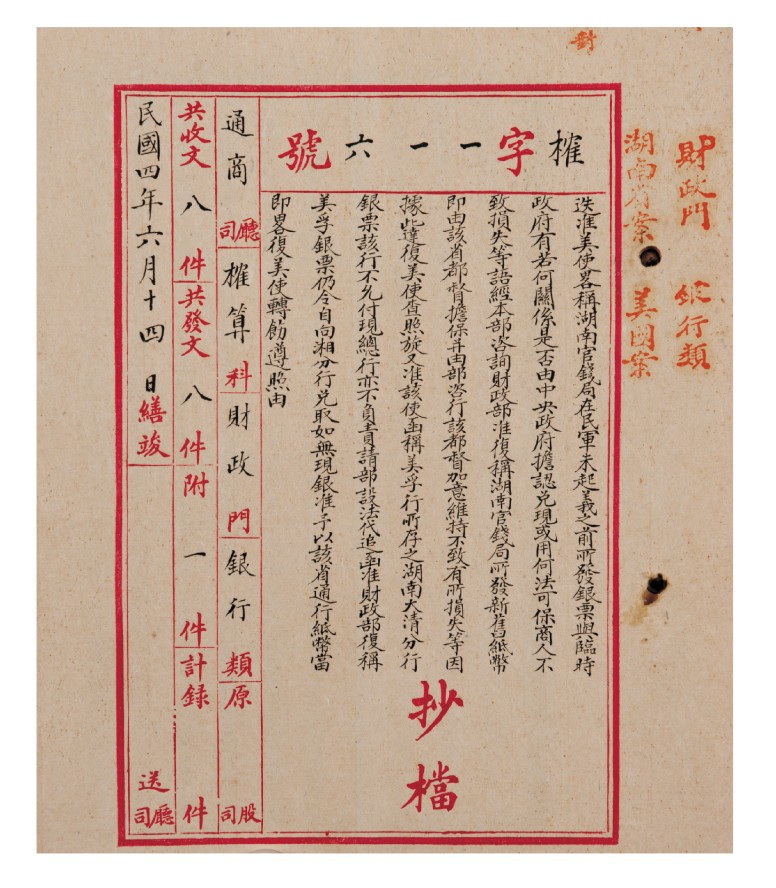 對
財政門 銀行類
湖南省案 美國案
榷字一一六號
迭准美使畧稱湖南官錢局在民軍未起義之前所發銀票與臨時
政府有若何關係是否由中央政府擔認兌現或用何法可保商人不
致損失等語經本部咨詢財政部准復稱湖南官錢局所發新舊紙幣
即由該省都督擔保并由部咨行該都督加意維持不致有所損失等因
據此達復美使查照旋又准該使函稱美孚行所存之湖南大清分行
銀票該行不允付現總行亦不負責請部設法代追函准財政部復稱
美孚銀票仍令自向湘分行兌取如無現銀准予以該省通行紙幣當
即畧復美使轉飭遵照由
抄檔
通商廳司榷算科財政門銀行類原股司
共收文八件共發文八件附一件計録件
民國四年六月十四日繕竣送廳司